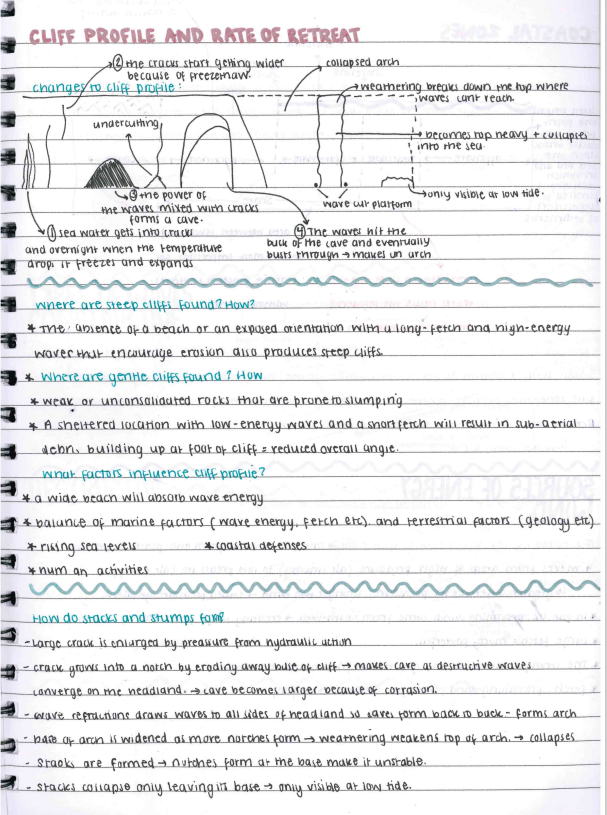 CLIFF PROFILE AND RATE OF RETREAT
② the cracks start getting wider
because of freezethaw.
collapsed arch
changes to cliff profile:
weathering breaks down the top where
waves cant reach.
undercutting
becomes top heavy + collapses
into the sea
③ the power of
the waves mixed with cracks
forms a cave.
wave cut platform
only visible at low tide.
① sea water gets into cracks
and overnight when the temperature
drops it freezes and expands
④ The waves hit the
back of the cave and eventually
busts through → makes an arch
where are steep cliffs found? How?
* The absence of a beach or an exposed orientation with a long-fetch and high-energy
waves that encourage erosion also produces steep cliffs.
* Where are gentle cliffs found? How
* weak or unconsolidated rocks that are prone to slumping
* A sheltered location with low-energy waves and a short fetch will result in sub-aerial
debris building up at foot of cliff = reduced overall angle.
What factors influence cliff profile?
* a wide beach will absorb wave energy
* balance of marine factors (wave energy, fetch etc). and terrestrial factors (geology etc)
* rising sea levels * coastal defenses
* human activities
How do stacks and stumps form?
- Large crack is enlarged by pressure from hydraulic action
- crack grows into a notch by eroding away base of cliff → makes cave as destructive waves
converge on the headland. → cave becomes larger because of corrasion.
- wave refractions draws waves to all sides of headland so caves form back to back - forms arch
- base of arch is widened as more notches form → weathering weakens top of arch. → collapses
- Stacks are formed → nutches form at the base make it unstable.
- stacks collapse only leaving its base → only visible at low tide.